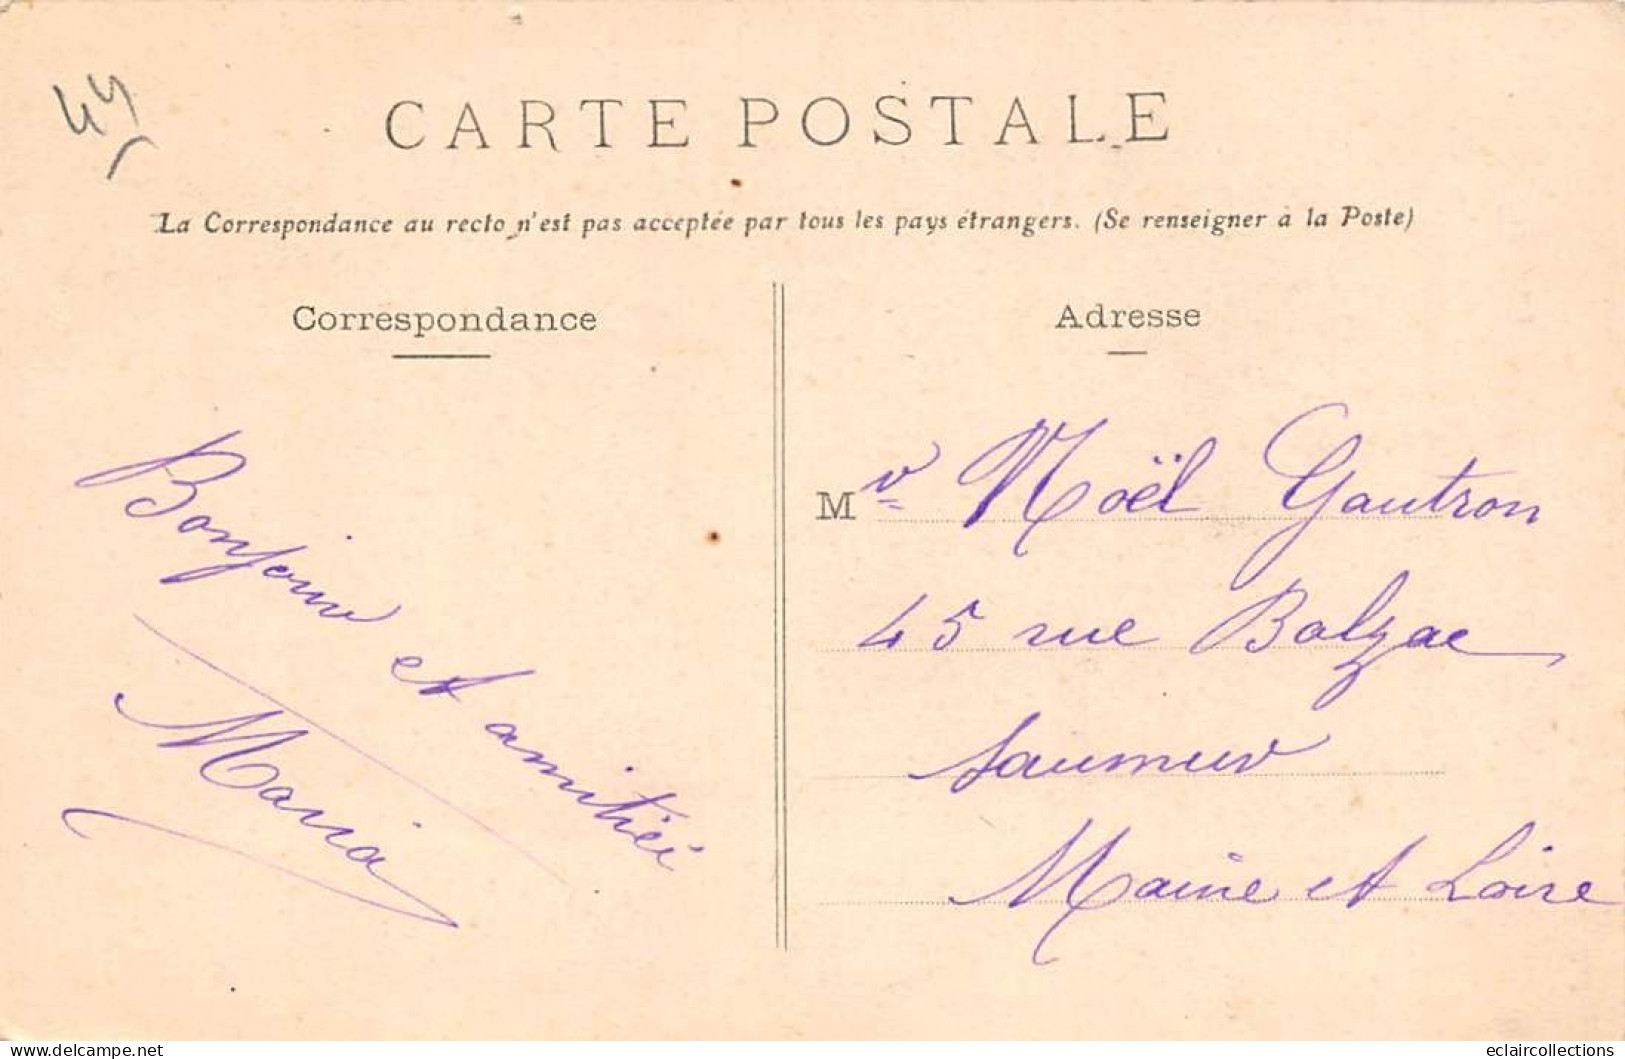 44
CARTE POSTALE
La Correspondance au recto n'est pas acceptée par tous les pays étrangers. (Se renseigner à la Poste)
Correspondance
Bonjour et amitiée
Maria
Adresse
Mr Noël Gautron
45 rue Balzac
Saumur
Maine et Loire
delcampe.net
eclaircollections